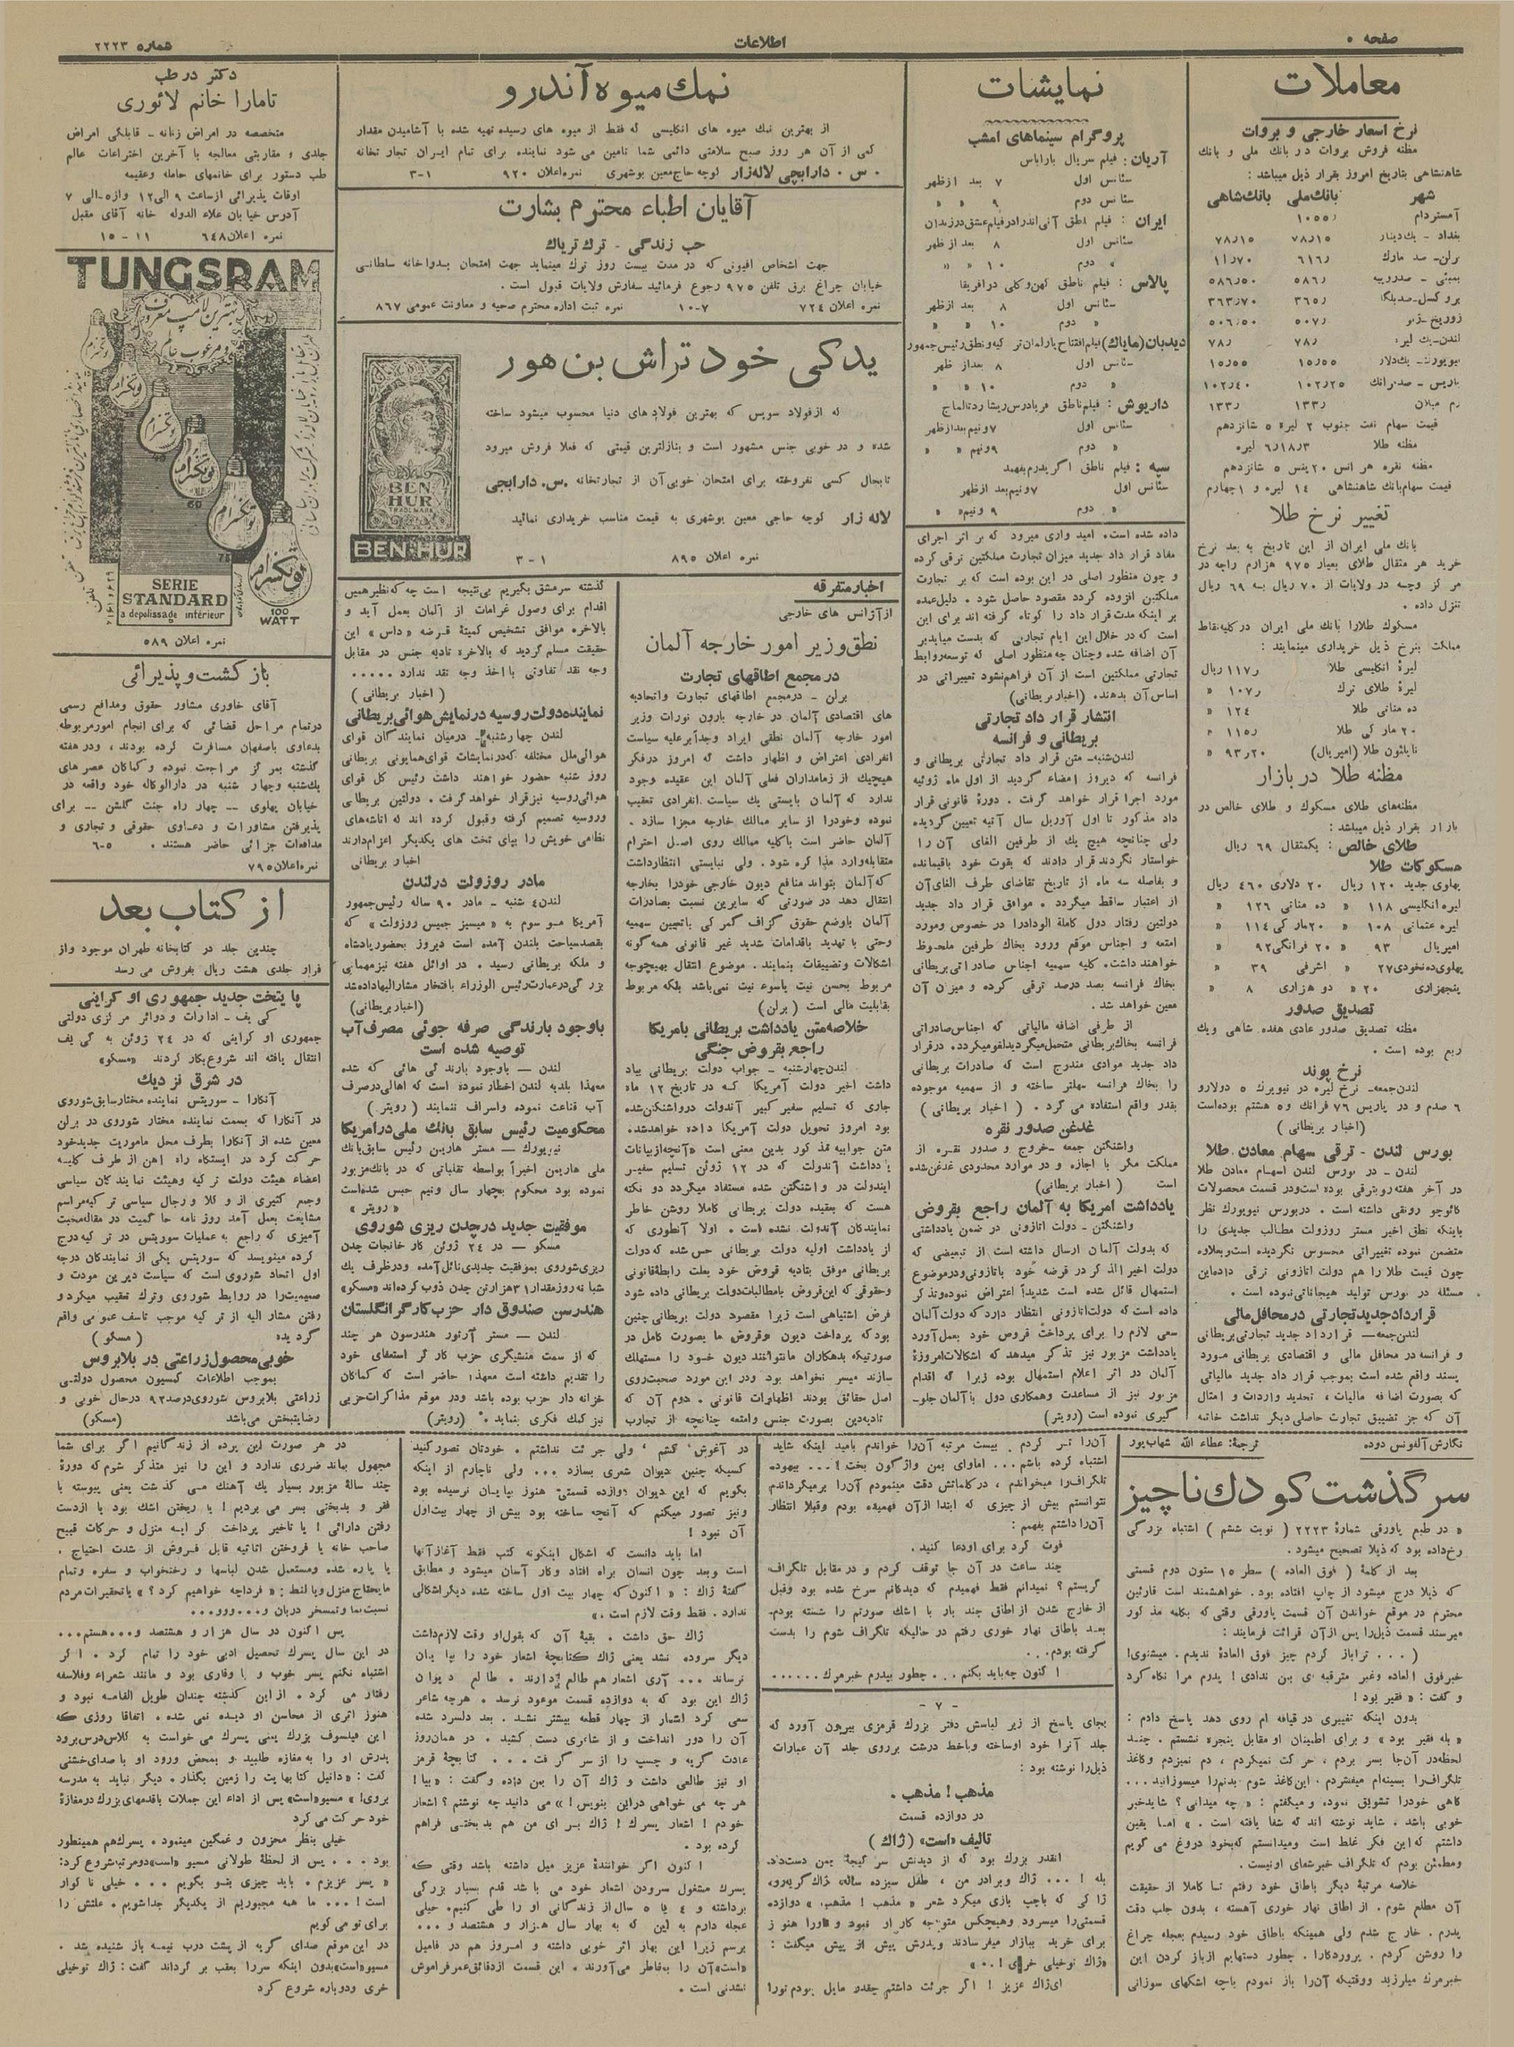 صفحه ۰
اطلاعات
شماره ۲۲۲۳
معاملات
نرخ اسعار خارجی و بروات
مظنه فروش بروات در بانك ملی و بانك
شاهنشاهی بتاریخ امروز بقرار ذیل میباشد :
شهر بانك‌ملی بانك‌شاهی
آمستردام ۱۰۵۵ر
بغداد - یك‌دینار ۷۸ر۱۵ ۷۸ر۱۵
قیمت سهام نفت جنوب ۲ لیره ۵ شانزدهم
مظنه طلا ۶ر۱۸ر۳ لیره
مظنه نقره هر انس ۲۰ پنس ۵ شانزدهم
قیمت سهام‌بانك شاهنشاهی ۱۴ لیره و ۱ چهارم
تغییر نرخ طلا
بانك ملی ایران از این تاریخ به بعد نرخ
خرید هر مثقال طلای بعیار ۹۷۵ هزارم را چه در
مرکز وچه در ولایات از ۷۰ ریال به ۶۹ ریال
تنزل داده .
مسکوك طلارا بانك ملی ایران در کلیه‌نقاط
مملکت بنرخ ذیل خریداری مینمایند :
لیرهٔ انگلیسی طلا ۱۱۷ر ریال
لیرهٔ طلای ترك ۱۰۷ر «
ده مناتی طلا ۱۲۴ «
۲۰ مارکی طلا ۱۱۵ر «
ناپلئون طلا (امپریال) ۹۳ر۲۰ «
مظنه طلا در بازار
مظنه‌های طلای مسکوك و طلای خالص در
بازار بقرار ذیل میباشد :
طلای خالص : یکمثقال ۶۹ ریال
مسکوکات طلا
پهلوی جدید ۱۲۰ ریال ۲۰ دلاری ۴۶۰ ریال
لیره انگلیسی ۱۱۸ « ده مناتی ۱۲۶ «
لیره عثمانی ۱۰۸ « ۲۰مارکی ۱۱۴ «
امپریال ۹۳ « ۲۰ فرانکی ۹۲ «
پهلوی‌ده‌نخودی۲۷ « اشرفی ۳۹ «
پنجهزاری ۲۰ « دو هزاری ۸ «
تصدیق صدور
مظنه تصدیق صدور عادی هفده شاهی ویك
ربع بوده است .
نرخ پوند
لندن‌جمعه- نرخ لیره در نیویرك ۵ دولارو
۶ صدم و در پاریس ۷۶ فرانك و۵ هشتم بوده‌است
(اخبار بریطانی)
بورس لندن - ترقی سهام معادن طلا
لندن - در بورس لندن اسهام معادن طلا
در آخر هفته رو بترقی بوده است‌ودر قسمت محصولات
کائوچو رونقی داشته است . دربورس نیویورك نظر
باینکه نطق اخیر مستر روزولت مطالب جدیدی را
متضمن نبوده تغییراتی محسوس نگردیده است‌وبعلاوه
چون قیمت طلا را هم دولت اتازونی ترقی داده‌این
مسئله در بورس تولید هیجاناتی‌نموده است .
قرارداد جدیدتجارتی درمحافل‌مالی
لندن‌جمعه- قرارداد جدید تجارتی‌بریطانی
و فرانسه در محافل مالی و اقتصادی بریطانی مورد
پسند واقع شده است بموجب قرار داد جدید مالیاتی
که بصورت اضافه مالیات ، تحدید واردات و امثال
آن که جز تضییق تجارت حاصلی دیگر نداشت خاتمه
نمایشات
پروگرام سینماهای امشب
آریان: فیلم سریال باراباس
سئانس اول ۷ بعد ازظهر
سئانس دوم ۹ « «
ایران :
سئانس اول ۸ بعد از ظهر
« دوم ۱۰ « «
پالاس : فیلم ناطق کهن‌وکلی درافریقا
سئانس اول ۸ بعد ازظهر
« دوم ۱۰ « «
سئانس اول ۸ بعداز ظهر
« دوم ۱۰ « «
داریوش :
سئانس اول ۷ونیم‌بعدازظهر
« دوم ۹ونیم« «
سپه : فیلم ناطق اگر پدرم بفهمد
سئانس اول ۷ونیم‌بعد ازظهر
« دوم ۹ ونیم« «
داده شده است. امید واری میرود که بر اثر اجرای
مفاد قرار داد جدید میزان تجارت مملکتین ترقی کرده
و چون منظور اصلی در این بوده است که بر تجارت
مملکتین افزوده گردد مقصود حاصل شود . دلیل‌عمده
بر اینکه مدت قرار داد را کوتاه گرفته اند برای این
است که در خلال این ایام تجارتی که بدست میایدبر
آن اضافه شده وچنان چه منظور اصلی که توسعه‌روابط
تجارتی مملکتین است از آن فراهم‌نشود تغییراتی در
اساس آن بدهند. (اخباربریطانی)
انتشار قرار داد تجارتی
بریطانی و فرانسه
لندن‌شنبه- متن قرار داد تجارتی بریطانی و
فرانسه که دیروز امضاء گردید از اول ماه ژوئیه
مورد اجرا قرار خواهد گرفت . دورهٔ قانونی قرار
داد مذکور تا اول آوریل سال آتیه تعیین گردیده
ولی چنانچه هیچ یك از طرفین الغای آن را
خواستار نگردند قرار دادند که بقوت خود باقیمانده
و بفاصله سه ماه از تاریخ تقاضای طرف الغای‌آن
از اعتبار ساقط میگردد . موافق قرار داد جدید
دولتین رفتار دول کاملة الودادرا در خصوص ومورد
امتعه و اجناس موقع ورود بخاك طرفین ملحوظ
خواهند داشت. کلیه سهمیه اجناس صادراتی بریطانی
بخاك فرانسه بصد درصد ترقی کرده و میزان آن
معین خواهد شد.
از طرفی اضافه مالیاتی که اجناس‌صادراتی
فرانسه بخاك‌بریطانی متحمل‌میگردیدلغومیگردد. درقرار
داد جدید موادی مندرج است که صادرات بریطانی
را بخاك فرانسه سهلتر ساخته و از سهمیه موجوده
بقدر واقع استفاده می گردد . ( اخبار بریطانی )
غدغن صدور نقره
واشنگتن جمعه -خروج و صدور نقره از
مملکت مگر با اجازه و در موارد محدودی غدغن‌شده
است ( اخبار بریطانی)
یادداشت امریکا به آلمان راجع بقروض
واشنگتن - دولت اتازونی در ضمن یادداشتی
که بدولت آلمان ارسال داشته است از تبعیضی که
دولت اخیرالذکر در قرضه خود باتازونی‌ودرموضوع
استمهال قائل شده است شدیداً اعتراض نموده‌وتذکر
داده است که دولت‌اتازونی انتظار دارد که دولت‌آلمان
سعی لازم را برای پرداخت قروض خود بعمل‌آورد
یادداشت مزبور نیز تذکر میدهد که اشکالات‌امروزهٔ
آلمان در اثر اعلام استمهال بوده زیرا که اقدام
مزبور نیز از مساعدت وهمکاری دول باآلمان جلو-
گیری نموده است (رویتر)
نمك میوه آندرو
از بهترین نمك میوه های انگلیسی که فقط از میوه های رسیده تهیه شده با آشامیدن مقدار
کمی از آن هر روز صبح سلامتی دائمی شما تامین می شود نماینده برای تمام ایران تجارتخانه
س . دارابچی لاله‌زار کوچه حاج‌معین بوشهری نمره‌اعلان ۹۲۰ ۱-۳
آقایان اطباء محترم بشارت
حب زندگی - ترك تریاك
جهت اشخاص افیونی که در مدت بیست روز ترك مینماید جهت امتحان بدواخانه سلطانی
خیابان چراغ برق تلفن ۹۷۵ رجوع فرمائید سفارش ولایات قبول است .
نمره اعلان ۷۲۴ ۷-۱۰ نمره ثبت اداره محترم صحیه و معاونت عمومی ۸۶۷
یدکی خود تراش بن هور
که ازفولاد سویس که بهترین فولادهای دنیا محسوب میشود ساخته
شده و در خوبی جنس مشهور است و بنازلترین قیمتی که فعلا فروش میرود
تابحال کسی نفروخته برای امتحان خوبی‌آن از تجارتخانه س. دارابچی
لاله زار کوچه حاجی معین بوشهری به قیمت مناسب خریداری نمائید
نمره اعلان ۸۹۵ ۱-۳
BEN
HUR
TRADE MARK
BEN-HUR
اخبار متفرقه
از آژانس های خارجی
نطق وزیر امور خارجه آلمان
در مجمع اطاقهای تجارت
برلن - درمجمع اطاقهای تجارت واتحادیه
های اقتصادی آلمان در خارجه بارون نورات وزیر
امور خارجه آلمان نطقی ایراد وجداً برعلیه سیاست
انفرادی اعتراض و اظهار داشت که امروز درفکر
هیچیك از زمامداران فعلی آلمان این عقیده وجود
ندارد که آلمان بایستی یك سیاست انفرادی تعقیب
نموده وخودرا از سایر ممالك خارجه مجزا سازد .
آلمان حاضر است باکلیه ممالك روی اصل احترام
متقابله‌وارد مذاکره شود. ولی نبایستی انتظارداشت
که‌آلمان بتواند منافع دیون خارجی خودرا بخارجه
انتقال دهد در صورتی که سایرین نسبت بصادرات
آلمان باوضع حقوق گزاف گمرکی باتعیین سهمیه
وحتی با تهدید باقدامات شدید غیر قانونی همه‌گونه
اشکالات وتضییقات بنمایند. موضوع انتقال بهیچوجه
مربوط بحسن نیت یاسوء نیت نمی‌باشد بلکه مربوط
بقابلیت مالی است ( برلن )
خلاصه‌متن یادداشت بریطانی بامریکا
راجع بقروض جنگی
لندن‌چهارشنبه- جواب دولت بریطانی بیاد
داشت اخیر دولت آمریکا که در تاریخ ۱۲ ماه
جاری که تسلیم سفیر کبیر آندولت درواشنگتن‌شده
بود امروز تحویل دولت آمریکا داده خواهدشد.
متن جوابیه مذکور بدین معنی است «آنچه‌ازبیانات
یادداشت آندولت که در ۱۲ ژوئن تسلیم سفیر
ایندولت در واشنگتن شده مستفاد میگردد دو نکته
هست که بعقیده دولت بریطانی کاملا روشن خاطر
نمایندگان آندولت نشده است . اولا آنطوری که
از یادداشت اولیه دولت بریطانی حس شده که‌دولت
بریطانی موفق بتادیه قروض خود بعلت رابطهٔ‌قانونی
وحقوقی که‌این‌قروض بامطالبات‌دولت بریطانی داده شود
فرض اشتباهی است زیرا مقصود دولت بریطانی چنین
بودکه پرداخت دیون وقروض ما بصورت کامل در
صورتیکه بدهکاران مانتوانند دیون خود را مستهلك
سازند میسر نخواهد بود ودر این‌مورد صحبت‌روی
اصل حقائق بودند اظهارات قانونی . دوم آن که
تادیه‌دین بصورت جنس وامتعه چنانچه از تجارب
گذشته سرمشق بگیریم بی‌نتیجه است چه که‌نظیرهمین
اقدام برای وصول غرامات از آلمان بعمل آمد و
بالاخره موافق تشخیص کمیتهٔ قرضه «داس» این
حقیقت مسلم گردید که بالاخره تادیه جنس در مقابل
وجه نقد تفاوتی با اخذ وجه نقد ندارد .....
(اخبار بریطانی)
نماینده‌دولت‌روسیه درنمایش‌هوائی‌بریطانی
لندن چهارشنبه - درمیان نمایندگان قوای
هوائی‌ملل مختلفه که‌درنمایشات قوای‌همایونی بریطانی
روز شنبه حضور خواهند داشت رئیس کل قوای
هوائی‌روسیه نیزقرار خواهدگرفت . دولتین بریطانی
وروسیه تصمیم گرفته وقبول کرده اند که اتاشه‌های
نظامی خویش را بپای تخت های یکدیگر اعزام‌دارند
اخبار بریطانی
مادر روزولت درلندن
لندن۲ شنبه - مادر ۹۰ ساله رئیس‌جمهور
آمریکا موسوم به «میسیز جمیس روزولت» که
بقصدسیاحت بلندن آمده است دیروز بحضورپادشاه
و ملکه بریطانی رسید. در اوائل هفته نیزمهمانی
بزرگی‌درعمارت‌رئیس الوزراء بافتخار مشارالیهاداده‌شد
(اخباربریطانی)
باوجود بارندگی صرفه جوئی مصرف‌آب
توصیه شده است
لندن – باوجود بارندگی هائی که شده
معهذا بلدیه لندن اخطار نموده است که اهالی‌درصرف
آب قناعت نموده واسراف ننمایند (رویتر)
محکومیت رئیس سابق بانك ملی درامریکا
نیویورك - مستر هاریمن رئیس سابق‌بانك
ملی هاریمن اخیراً بواسطه تقلباتی که در بانك‌مزبور
نموده بود محکوم بچهار سال ونیم حبس شده‌است
«رویتر»
موفقیت جدید درچدن ریزی شوروی
مسکو – در ۲۴ ژوئن کارخانجات چدن
ریزی‌شوروی بموفقیت جدیدی‌نائل‌آمده ودرظرف یك
شبانه‌روزمقدار۳۱هزارتن چدن ذوب کرده‌اند «مسکو»
هندرسن صندوق دار حزب‌کارگرانگلستان
لندن – مستر آرتور هندرسون هر چند
که از سمت منشیگری حزب کارگر استعفای خود
را تقدیم داشته است معهذا حاضر است که کماکان
خزانه دار حزب بوده باشد ودر موقع مذاکرات‌حزبی
نیزکمك فکری بنماید . (رویتر)
دکتر در طب
تامارا خانم لائوری
متخصصه در امراض زنانه - قابلگی امراض
جلدی و مقاربتی معالجه با آخرین اختراعات عالم
طب دستور برای خانمهای حامله وعقیمه
اوقات پذیرائی ازساعت ۹ الی۱۲ واز۵-الی ۷
آدرس خیابان علاء الدوله خانه آقای مقبل
نمره اعلان۶۴۸ ۱۱ - ۱۵
TUNGSRAM
بهترین لامپ معروف
و مرغوب عالم
تونگسرام
60
75
100
WATT
SERIE
STANDARD
a dépolissage intérieur
نمره اعلان ۵۸۹
بازگشت و پذیرائی
آقای خاوری مشاور حقوق ومدافع رسمی
درتمام مراحل قضائی که برای انجام امورمربوطه
بدعاوی باصفهان مسافرت کرده بودند ، ودر هفته
گذشته بمرکز مراجعت نموده و کماکان عصرهای
یك‌شنبه وچهار شنبه در دارالوکاله خود واقعه در
خیابان پهلوی – چهار راه جنت گلشن – برای
پذیرفتن مشاورات و دعاوی حقوقی و تجاری و
مدافعات جزائی حاضر هستند . ۵-۶
نمره‌اعلان۷۹۵
از کتاب بعد
چندین جلد در کتابخانه طهران موجود واز
قرار جلدی هشت ریال بفروش می رسد
پایتخت جدید جمهوری اوکراینی
کی یف - ادارات و دوائر مرکزی دولتی
جمهوری اوکراینی که در ۲۴ ژوئن به کی یف
انتقال یافته اند شروع‌بکار کردند «مسکو»
در شرق نزدیك
آنکارا - سوریتس نماینده مختارسابق‌شوروی
در آنکارا که بسمت نماینده مختار شوروی در برلن
معین شده از آنکارا بطرف محل ماموریت جدیدخود
حرکت کرد در ایستگاه راه آهن از طرف کلیه
اعضاء هیئت دولت ترکیه وهیئت نمایندگان سیاسی
وجمع کثیری از وکلا و رجال سیاسی ترکیه‌مراسم
مشایعت بعمل آمد روزنامه حاکمیت در مقاله‌محبت
آمیزی که راجع به عملیات سوریتس در ترکیه‌درج
کرده مینویسد که سوریتس یکی از نمایندگان‌درجه
اول اتحاد شوروی است که سیاست دیرین مودت و
صمیمیت‌را در روابط شوروی وترك تعقیب میکردو
رفتن مشار الیه از ترکیه موجب تاسف عمومی واقع
گردیده (مسکو)
خوبی‌محصول‌زراعتی در بلاروس
بموجب اطلاعات کمسیون محصول دولتی
زراعتی بلاروس شوروی‌درصد۹۲ درحال خوبی و
رضایتبخش می‌باشد (مسکو)
نگارش آلفونس دوده
ترجمهٔ: عطاء الله شهاب‌پور
سرگذشت کودك ناچیز
« در طبع پاورقی شمارهٔ ۲۲۲۲ ( نوبت ششم ) اشتباه بزرگی
رخ‌داده بود که ذیلا تصحیح میشود.
بعد از کلمهٔ ( فوق العاده ) سطر ۱۵ ستون دوم قسمتی
که ذیلا درج میشود از چاپ افتاده بود. خواهشمند است قارئین
محترم در موقع خواندن آن قسمت پاورقی وقتی که بکلمه مذکور
میرسند قسمت ذیل‌را پس ازآن قرائت فرمایند :
( ... تراباز کردم چیز فوق العادهٔ ندیدم. میشنوی!
خبرفوق العاده وغیر مترقبه ای بمن ندادی! پدرم مرا نگاه کرد
و گفت : « فقیر بود !
بدون اینکه تغییری در قیافه ام روی دهد پاسخ دادم :
« بله فقیر بود » و برای اطمینان او مقابل پنجره نشستم . چند
لحظه‌در آن‌جا بسر بردم ، حرکت نمیکردم ، دم نمیزدم وکاغذ
تلگراف‌را بسینه‌ام میفشردم . این‌کاغذ شوم بدنم‌را میسوزانید...
گاهی خودرا تشویق نموده، و میگفتم : « چه میدانی ؟ شایدخبر
خوبی باشد. شاید نوشته اند که شفا یافته است . » اما یقین
داشتم که‌این فکر غلط است ومیدانستم که‌بخود دروغ می گویم
ومطمئن بودم که تلگراف خبرشفای اونیست.
خلاصه مرتبهٔ دیگر باطاق خود رفتم تا کاملا از حقیقت
آن مطلع شوم . از اطاق نهار خوری آهسته ، بدون جلب دقت
پدرم، خارج شدم ولی همینکه باطاق خود رسیدم بعجله چراغ
را روشن کردم . پروردگارا ، چطور دستهایم ازباز کردن این
خبرمرك میلرزید ووقتیکه آن‌را باز نمودم باچه اشکهای سوزانی
آن‌را تر کردم . بیست مرتبه آن‌را خواندم بامید اینکه شاید
اشتباه کرده باشم... اماوای بمن واژگون بخت !... بیهوده
تلگراف‌را میخواندم ، درکلماتش دقت مینمودم آن‌را برمیگرداندم
نتوانستم بیش از چیزی که ابتدا ازآن فهمیده بودم وقبلا انتظار
آن‌را داشتم بفهم :
فوت کرد برای اودعا کنید.
چند ساعت در آن جا توقف کردم و در مقابل تلگراف
گریستم ؟ نمیدانم فقط فهمیدم که دیدگانم سرخ شده بود وقبل
از خارج شدن از اطاق چند بار با اشك صورتم را شسته بودم.
بعد باطاق نهار خوری رفتم در حالیکه تلگراف شوم را بدست
گرفته بودم..
اکنون چه‌باید بکنم ... چطور بپدرم خبرمرك......
- ۷ -
بجای پاسخ از زیر لباسش دفتر بزرك قرمزی بیرون آورد که
جلد آنرا خود اوساخته وباخط درشت برروی جلد آن عبارات
ذیل‌را نوشته بود :
مذهب! مذهب .
در دوازده قسمت
تالیف «است» (ژاك)
آنقدر بزرك بود که از دیدنش سرگیجه بمن دست‌داد.
بله !... ژاك وبرادر من ، طفل سیزده ساله، ژاك گریه‌رو،
ژاکی که باچپ بازی میکرد شعر « مذهب ! مذهب، » دوازده
قسمتی‌را میسرود وهیچکس متوجه کار او نبود و«اورا هنوز
برای خرید ببازار میفرسادند وپدرش بیش از پیش میگفت :
«ژاك توخیلی خری ! ..»
ای‌ژاك عزیز ! اگر جرئت داشتم چقدر مایل بودم تورا
در آغوش کشم ، ولی جرئت نداشتم . خودتان تصورکنید
کسیکه چنین دیوان شعری بسازد ... ولی ناچارم از اینکه
بگویم که این دیوان دوازده قسمتی هنوز بپایان نرسیده بود
ونیز تصور میکنم که آنچه ساخته بود بیش از چهار بیت‌اول
آن نبود !
اما باید دانست که اشکال اینگونه کتب فقط آغازآنها
است وبعد چون انسان براه افتاد وکار آسان میشود و مطابق
گفتهٔ ژاك : « اکنون‌که چهار بیت اول ساخته شده دیگراشکالی
ندارد. فقط وقت لازم است .»
ژاك حق داشت . بقیهٔ آن که بقول‌او وقت لازم‌داشت
دیگر سروده نشد یعنی ژاك کتابچهٔ اشعار خود را بپایان
نرساند ... آری اشعار هم طالع دارند. طالع دیوان
ژاك این بود که به دوازده قسمت موعود نرسد . هرچه شاعر
سعی کرد اشعار از چهار قطعه بیشتر نشد . بعد دلسرد شده
آن را دور انداخت و از شاعری دست کشید . در همان‌روز
عادت گریه و چسب را از سر گرفت ... کتابچهٔ قرمز
او نیز طالعی داشت و ژاك آن را بمن داده وگفت : «بیا!
هر چه می خواهی دراین بنویس !» می دانید چه نوشتم ؟ اشعار
خودم ! اشعار پسرك ! ژاك برای من هم بدبختی فراهم
کرده بود .
اکنون اگر خوانندهٔ عزیز میل داشته باشد وقتی که
پسرك مشغول سرودن اشعار خود می باشد قدم بسیار بزرگی
برداشته و ۴ یا ۵ سال‌از زندگانی او را طی کنیم. خیلی
عجله دارم به این که به بهار سال هزار و هشتصد و...
برسم زیرا این بهار اثر خوبی داشته و امروز هم در فامیل
«است»آن را بخاطر می‌آورند. این قسمت ازدقائق‌عمرفراموش
نشدنی است .
در هر صورت این پرده از زندگانیم اگر برای شما
مجهول بماند ضرری ندارد و این را نیز متذکر شوم که دورهٔ
چند سالهٔ مزبور بسیار یك آهنك می گذشت یعنی پیوسته با
فقر و بدبختی بسر می بردیم ! با ریختن اشك بود یا ازدست
رفتن دارائی ! یا تاخیر پرداخت کرایه منزل و حرکات قبیح
صاحب خانه یا فروختن اثاثیه قابل فروش از شدت احتیاج .
یا پاره شده ومستعمل شدن لباسها و رختخواب و سفره وتمام
مایحتاج منزل ویا لنط: «فرداچه خواهیم کرد؟ » یاتحقیرات‌مردم
نسبت‌بما وتمسخر دربان و...وو...
پس اکنون در سال هزار و هشتصد و...هستم...
در این سال پسرك تحصیل ادبی خود را تمام کرد. اگر
اشتباه نکنم پسر خوب و باوقاری بود و مانند شعراء وفلاسفه
رفتار می کرد . ازاین گذشته چندان طویل القامه نبود و
هنوز اثری از محاسن او دیده نمی شده . اتفاقا روزی که
این فیلسوف بزرك یعنی پسرك می خواست به کلاس‌درس‌برود
پدرش او را به مغازه طلبید و بمحض ورود او باصدای‌خشنی
گفت : «دانیل کتابهایت را زمین بگذار. دیگر نباید به مدرسه
بروی !» مسیو«است» پس از اداء این جملات باقدمهای بزرك درمغازهٔ
خود حرکت می کرد
خیلی بنظر محزون و غمگین مینمود . پسرك‌هم همینطور
بود ... پس از لحظهٔ طولانی مسیو «است»دومرتبه‌شروع‌کرد:
« پسر عزیزم ، باید چیزی بتو بگویم ... خیلی ناگوار
است !... ما همه مجبوریم از یکدیگر جداشویم . علتش را
برای تو می گویم
در این‌موقع صدای گریه از پشت درب نیمه باز شنیده شد.
مسیو«است»بدون اینکه سررا بعقب برگرداند گفت: ژاك توخیلی
خری ودوباره شروع کرد